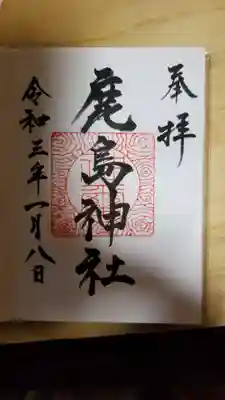 奉拝
鹿島神社
令和三年一月八日